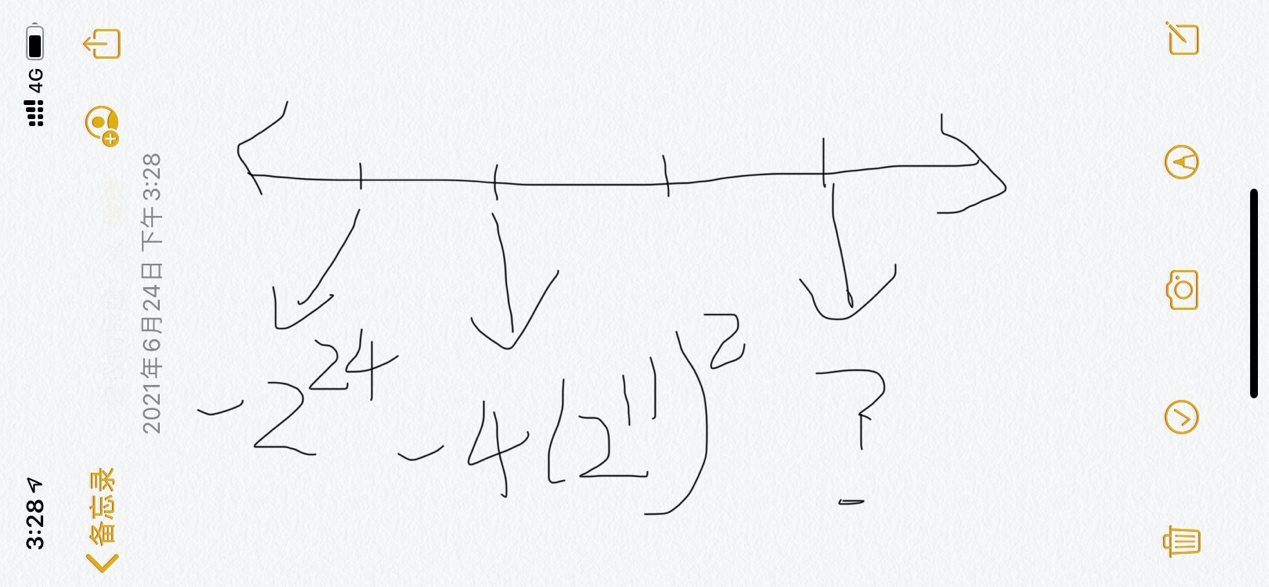 3:28
4G
备忘录
2021年6月24日 下午3:28
-2^24 -4(2^11)^2 ?